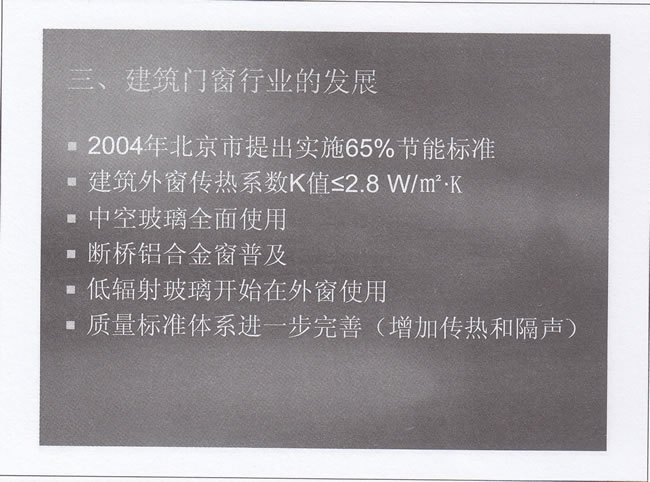 三、建筑门窗行业的发展
▪ 2004年北京市提出实施65%节能标准
▪ 建筑外窗传热系数K值≤2.8 W/㎡·K
▪ 中空玻璃全面使用
▪ 断桥铝合金窗普及
▪ 低辐射玻璃开始在外窗使用
▪ 质量标准体系进一步完善（增加传热和隔声）